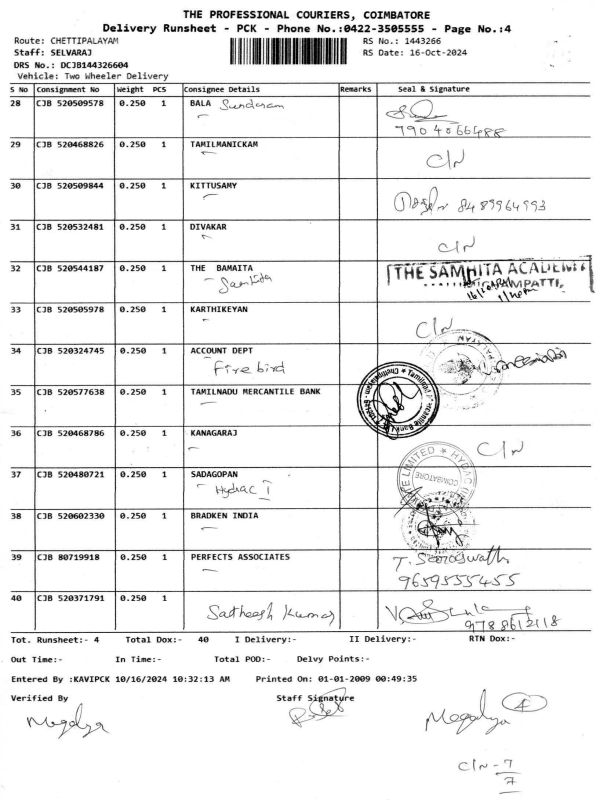 THE PROFESSIONAL COURIERS, COIMBATORE
Delivery Runsheet - PCK - Phone No.:0422-3505555 - Page No.:4
Route: CHETTIPALAYAM RS No.: 1443266
Staff: SELVARAJ RS Date: 16-Oct-2024
DRS No.: DCJB144326604
Vehicle: Two Wheeler Delivery
S No Consignment No Weight PCS Consignee Details Remarks Seal & Signature
28 CJB 520509578 0.250 1 BALA Sundaram
7904066488
29 CJB 520468826 0.250 1 TAMILMANICKAM C/N
30 CJB 520509844 0.250 1 KITTUSAMY 8489964993
31 CJB 520532481 0.250 1 DIVAKAR C/N
32 CJB 520544187 0.250 1 THE BAMAITA THE SAMHITA ACADEMY
Samhita
33 CJB 520505978 0.250 1 KARTHIKEYAN C/N
34 CJB 520324745 0.250 1 ACCOUNT DEPT
Firebird
35 CJB 520577638 0.250 1 TAMILNADU MERCANTILE BANK
36 CJB 520468786 0.250 1 KANAGARAJ C/N
37 CJB 520480721 0.250 1 SADAGOPAN LIMITED HYDAC COIMBATORE
Hydac I
38 CJB 520602330 0.250 1 BRADKEN INDIA
39 CJB 80719918 0.250 1 PERFECTS ASSOCIATES T. Saraswathi
9659555455
40 CJB 520371791 0.250 1 Satheesh Kumar
9788612118
Tot. Runsheet:- 4 Total Dox:- 40 I Delivery:- II Delivery:- RTN Dox:-
Out Time:- In Time:- Total POD:- Delvy Points:-
Entered By :KAVIPCK 10/16/2024 10:32:13 AM Printed On: 01-01-2009 00:49:35
Verified By Staff Signature
Megalya Megalya 4
C/N - 7
7